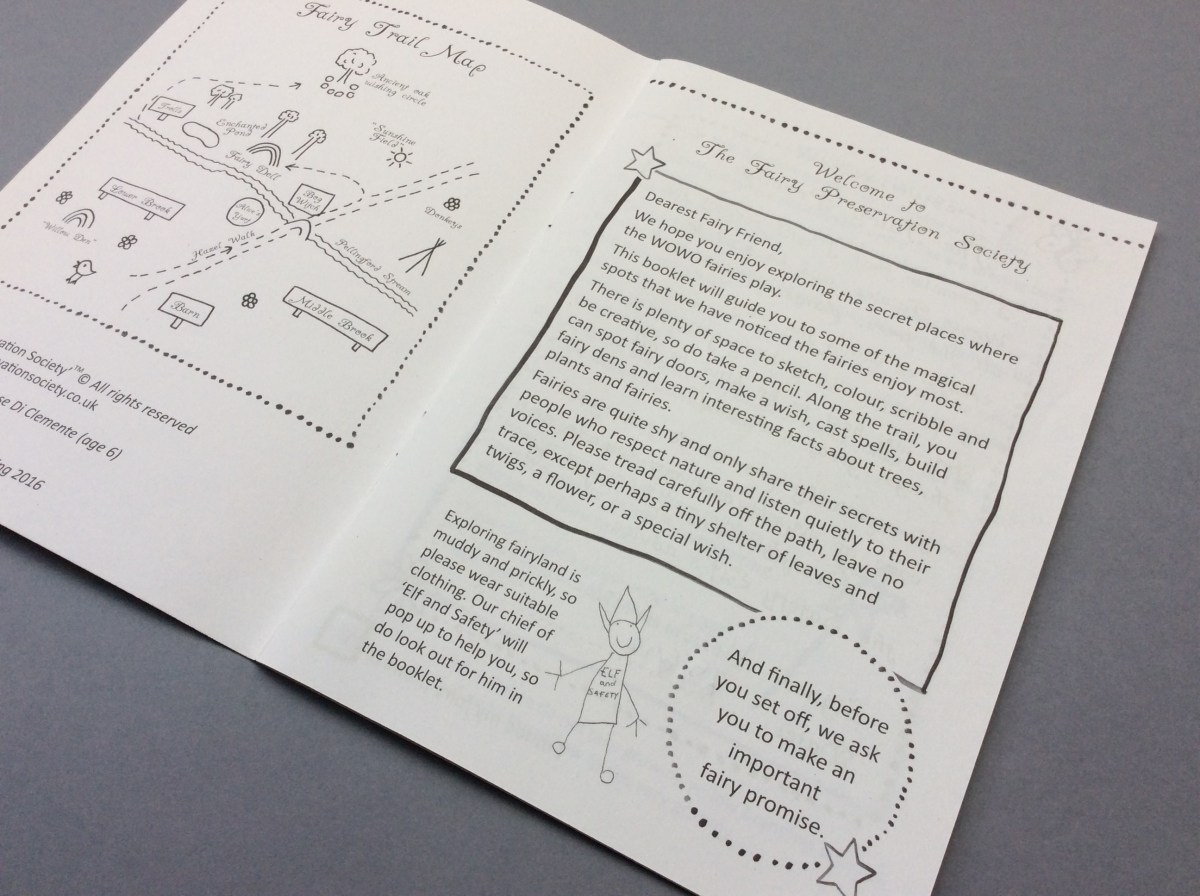 Fairy Trail Map
Ancient oak
wishing circle
Trolls
Enchanted
Pond
"Sunshine
Field"
Fairy Dell
Bog
Witch
Lower Brook
Donkeys
"Willow Den"
Hazel Walk
Pellingford Stream
Barn
Middle Brook
ation Society' ™ © All rights reserved
vationsociety.co.uk
se Di Clemente (age 6)
ng 2016
Welcome to
The Fairy Preservation Society
Dearest Fairy Friend,
We hope you enjoy exploring the secret places where
the WOWO fairies play.
This booklet will guide you to some of the magical
spots that we have noticed the fairies enjoy most.
There is plenty of space to sketch, colour, scribble and
be creative, so do take a pencil. Along the trail, you
can spot fairy doors, make a wish, cast spells, build
fairy dens and learn interesting facts about trees,
plants and fairies.
Fairies are quite shy and only share their secrets with
people who respect nature and listen quietly to their
voices. Please tread carefully off the path, leave no
trace, except perhaps a tiny shelter of leaves and
twigs, a flower, or a special wish.
Exploring fairyland is
muddy and prickly, so
please wear suitable
clothing. Our chief of
'Elf and Safety' will
pop up to help you, so
do look out for him in
the booklet.
ELF
and
SAFETY
And finally, before
you set off, we ask
you to make an
important
fairy promise.